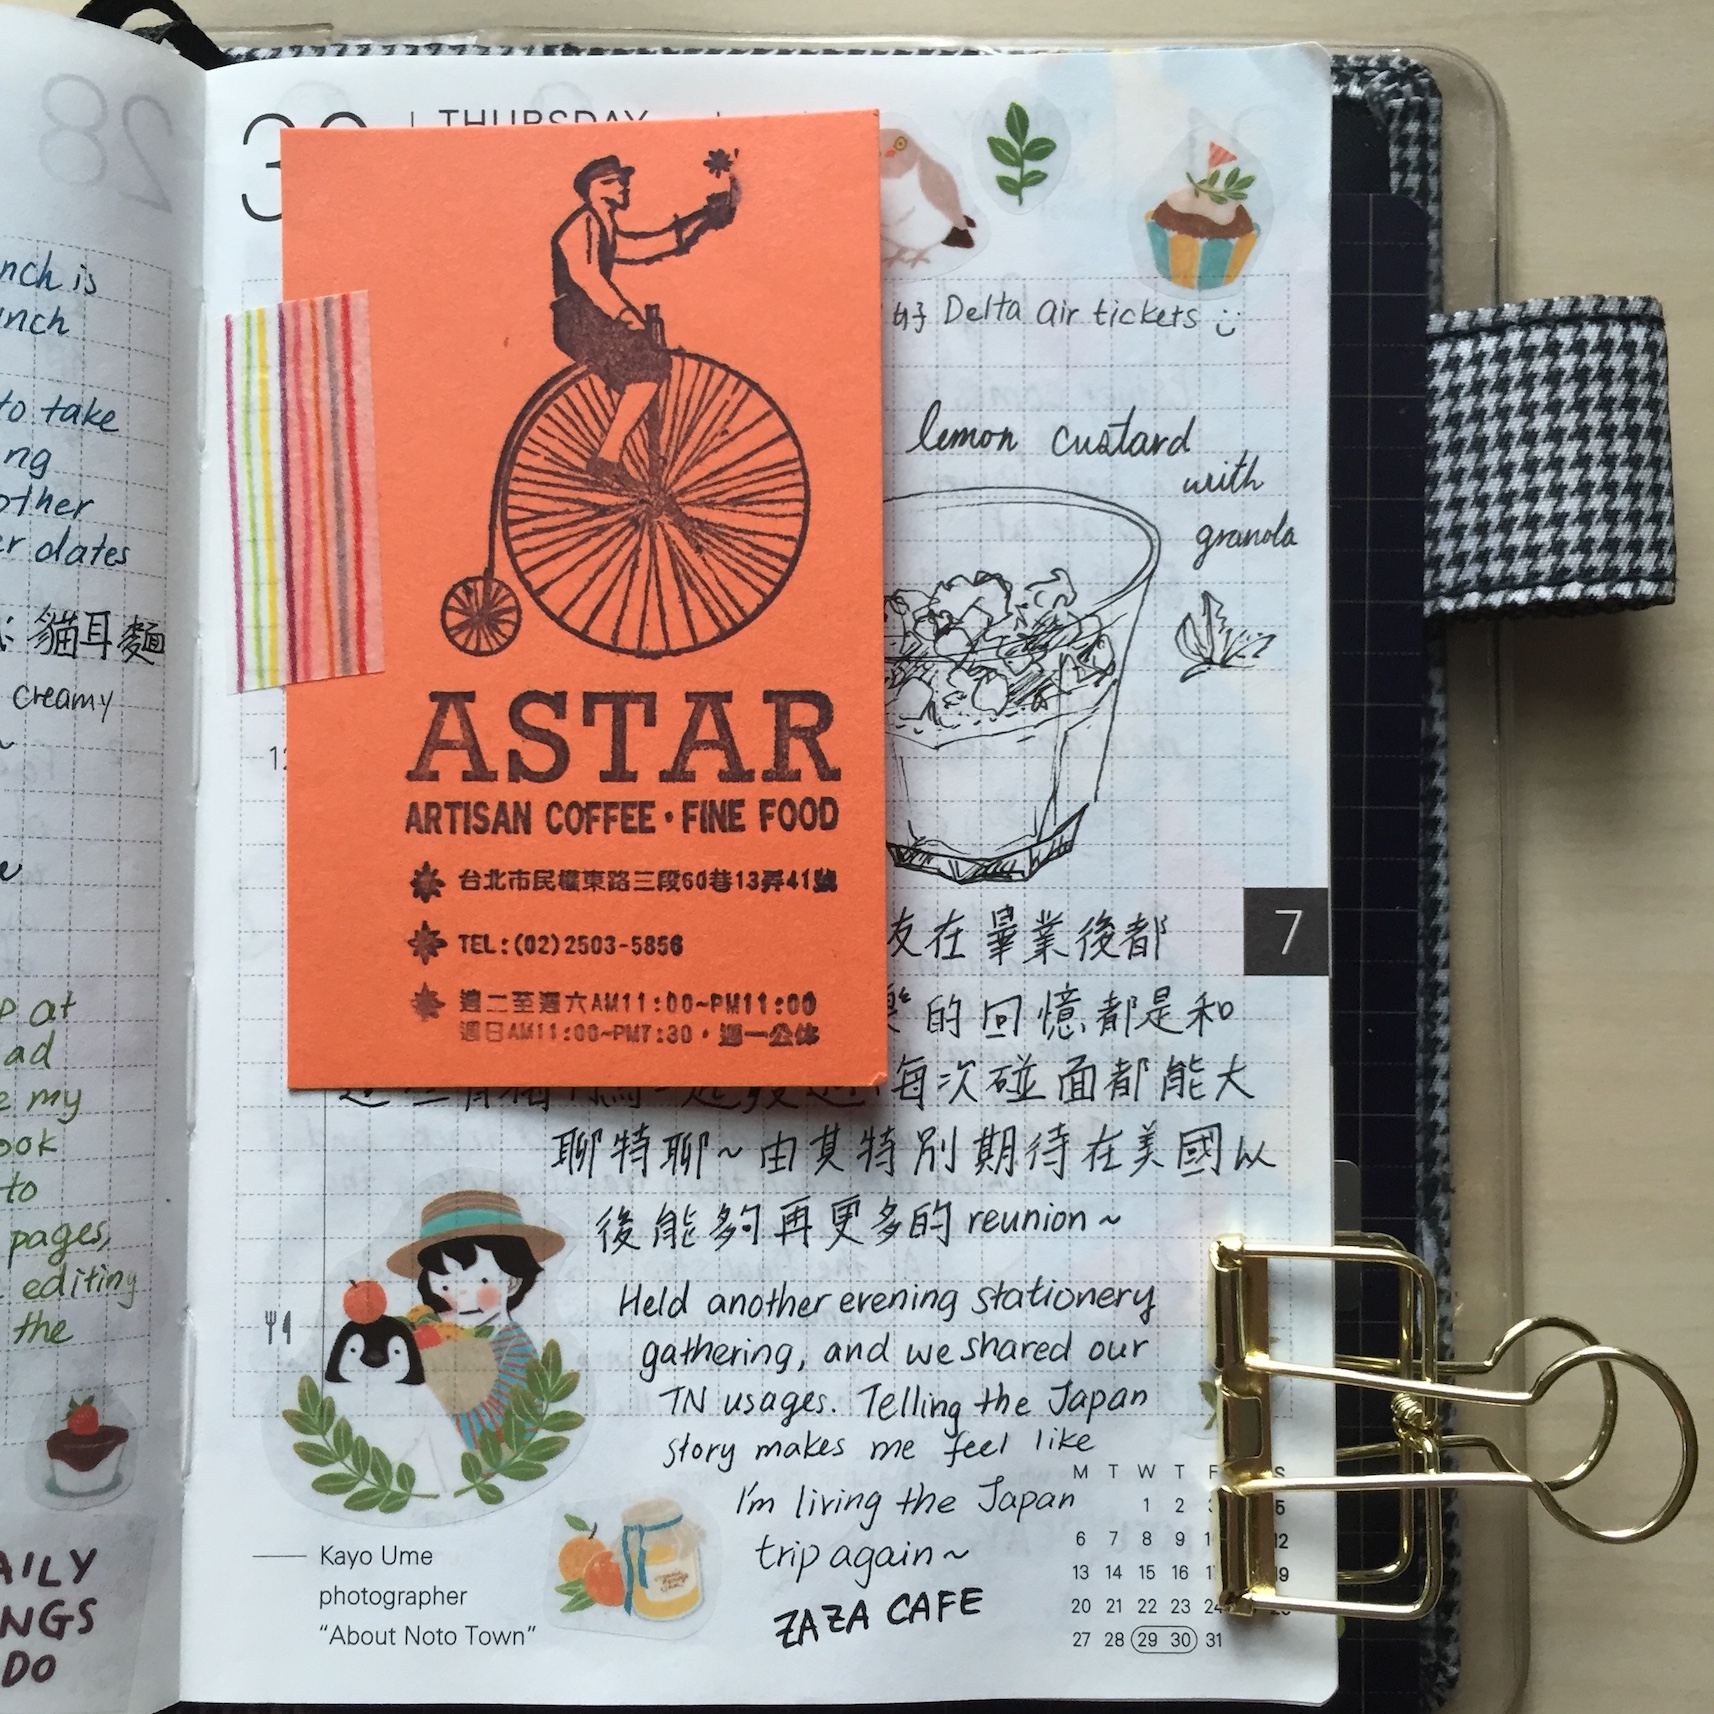 28
THURSDAY
nch is
unch
to take
ng
other
er dates
貓耳麵
creamy
at
ad
my
ook
to
pages,
editing
the
AILY
NGS
DO
ASTAR
ARTISAN COFFEE・FINE FOOD
台北市民權東路三段60巷13弄41號
TEL:(02)2503-5856
週二至週六AM11:00~PM11:00
週日AM11:00~PM7:30・週一公休
好 Delta air tickets
lemon custard
with
granola
7
友在畢業後都
的回憶都是和
每次碰面都能大
聊特聊~由其特別期待在美國以
後能夠再更多的 reunion~
Held another evening stationery
gathering, and we shared our
TN usages. Telling the Japan
story makes me feel like
I'm living the Japan
trip again~
ZAZA CAFE
Kayo Ume
photographer
"About Noto Town"
M T W T F S
1 2 3 5
6 7 8 9 10 12
13 14 15 16 17 19
20 21 22 23 24
27 28 29 30 31